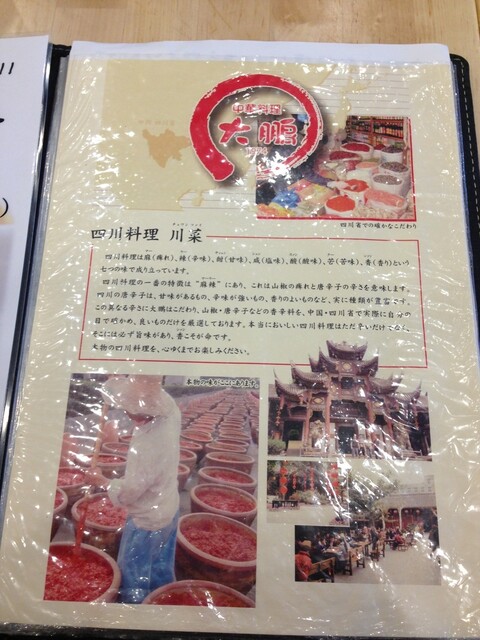 中華料理
大鵬
四川省での確かなこだわり
四川料理 川菜
四川料理は麻(痺れ)、辣(辛味)、甜(甘味)、咸(塩味)、酸(酸味)、苦(苦味)、香(香り)という
七つの味で成り立っています。
四川料理の一番の特徴は"麻辣"にあり、これは山椒の痺れと唐辛子の辛さを意味します。
四川の唐辛子は、甘味があるもの、辛味が強いもの、香りのよいものなど、実に種類が豊富です。
この異なる辛さに大鵬はこだわり、山椒・唐辛子などの香辛料を、中国・四川省で実際に自分の
目で確かめ、良いものだけを厳選しております。本当においしい四川料理はただ辛いだけでなく、
そこには必ず旨味があり、香こそが命です。
大鵬の四川料理を、心ゆくまでお楽しみください。
本物の味がここにあります。